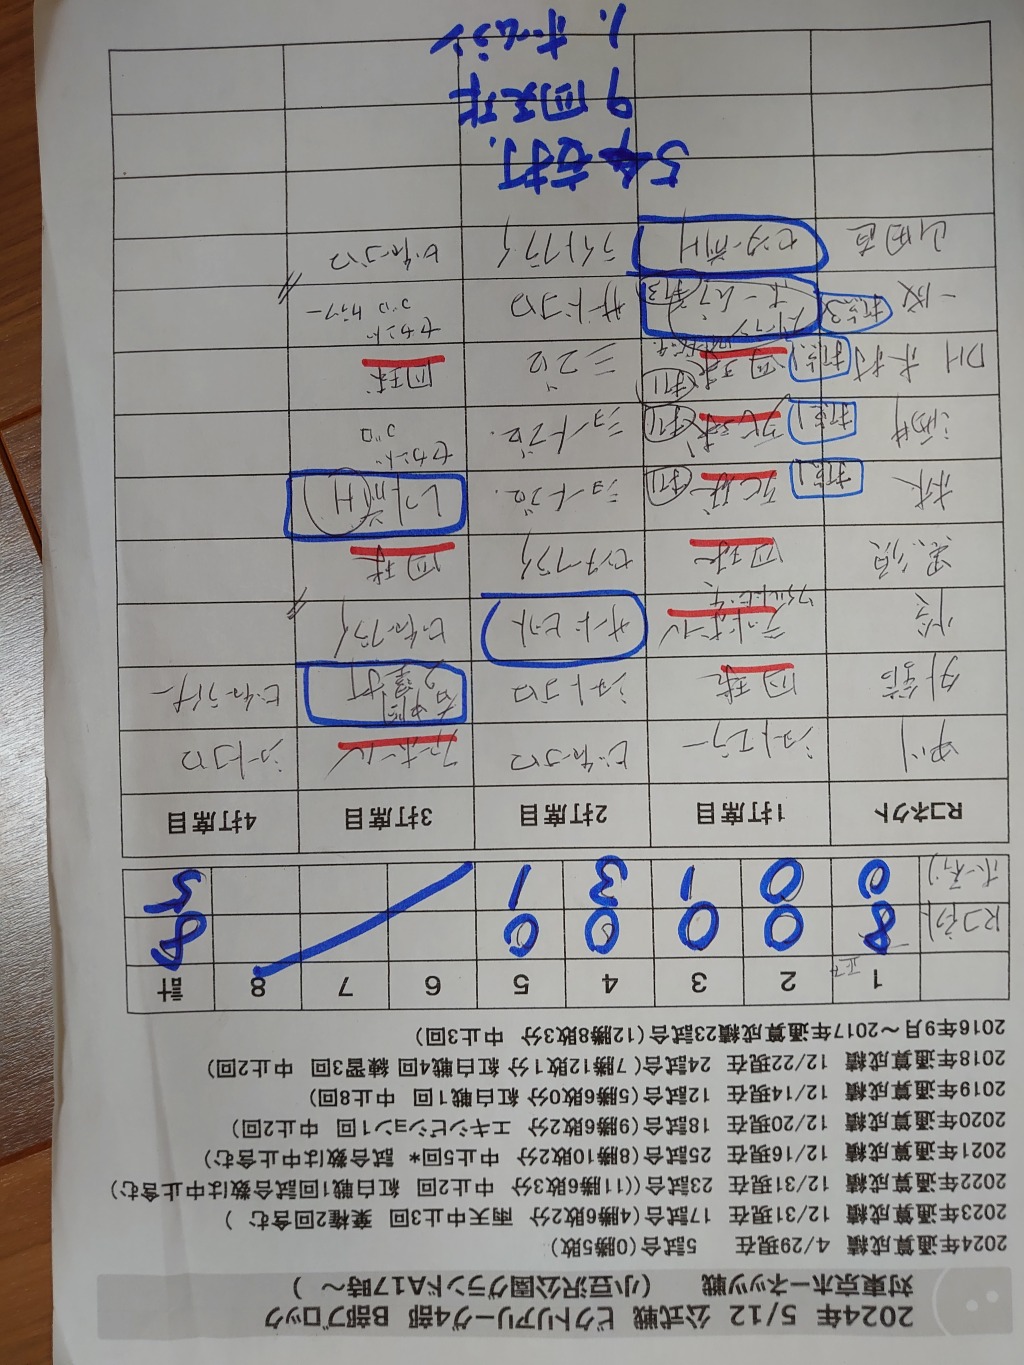 2024年 5/12 公式戦 ビクトリアリーグ4部 B部ブロック
対東京ホーネッツ戦 (小豆沢公園グランドA17時～ )
2024年通算成績 4/29現在 5試合(0勝5敗)
2023年通算成績 12/31現在 17試合(4勝6敗2分 雨天中止3回 棄権2回含む )
2022年通算成績 12/31現在 23試合((11勝6敗3分 中止2回 紅白戦1回試合数は中止含む)
2021年通算成績 12/16現在 25試合(8勝10敗2分 中止5回* 試合数は中止含む)
2020年通算成績 12/20現在 18試合(9勝6敗2分 エキシビション1回 中止2回)
2019年通算成績 12/14現在 12試合(5勝6敗0分 紅白戦1回 中止8回)
2018年通算成績 12/22現在 24試合(7勝12敗1分 紅白戦4回 練習3回 中止2回)
2016年9月～2017年通算成績23試合(12勝8敗3分 中止3回)
1 2 3 4 5 6 7 8 計
Rコネクト 8 0 0 0 0 8
ホーネッツ 0 0 1 3 1 5
Rコネクト 1打席目 2打席目 3打席目 4打席目
中川 ショートエラー ピッチャーゴロ フォアボール ショートゴロ
四球 ショートゴロ ピッチャーライナー
デッドボール サードヒット ピッチャーフライ
四球 センターフライ 四球
林 打点1 死球 打1 ショートゴロ. レフト前H
酒井 打点1 死球 打1 ショートゴロ. セカンドゴロ
DH 木村 打点1 四球 打1 三ゴロ 四球
打点3 ホームラン 打3 サードゴロ セカンドゴロ エラー
山田直 センター前H ライトフライ ピッチャーゴロ
5安打.
9四死球
1. ホームラン